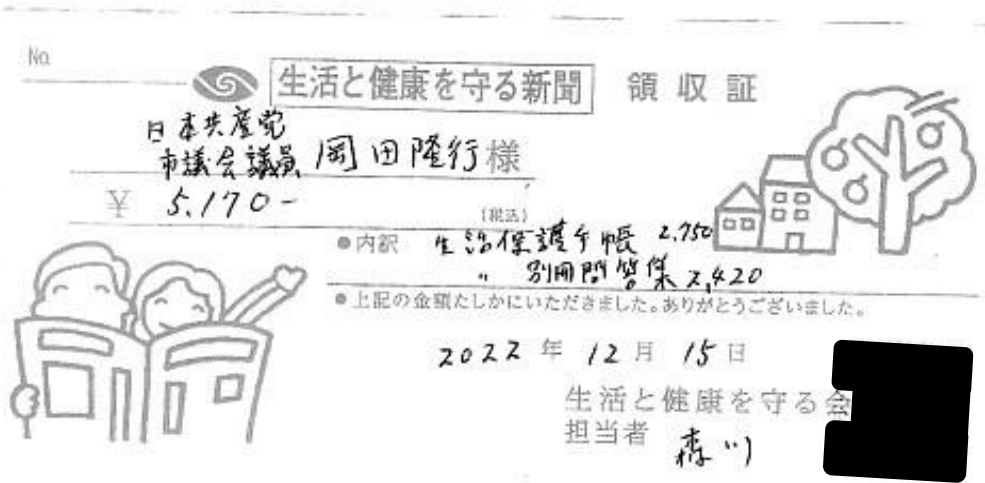 No.
生活と健康を守る新聞 領収証
日本共産党
市議会議員 岡田隆行様
¥ 5.170-
(税込)
●内訳 生活保護手帳 2,750
〃 別冊問答集 2,420
●上記の金額たしかにいただきました。ありがとうございました。
2022年 12月 15日
生活と健康を守る会
担当者 森川